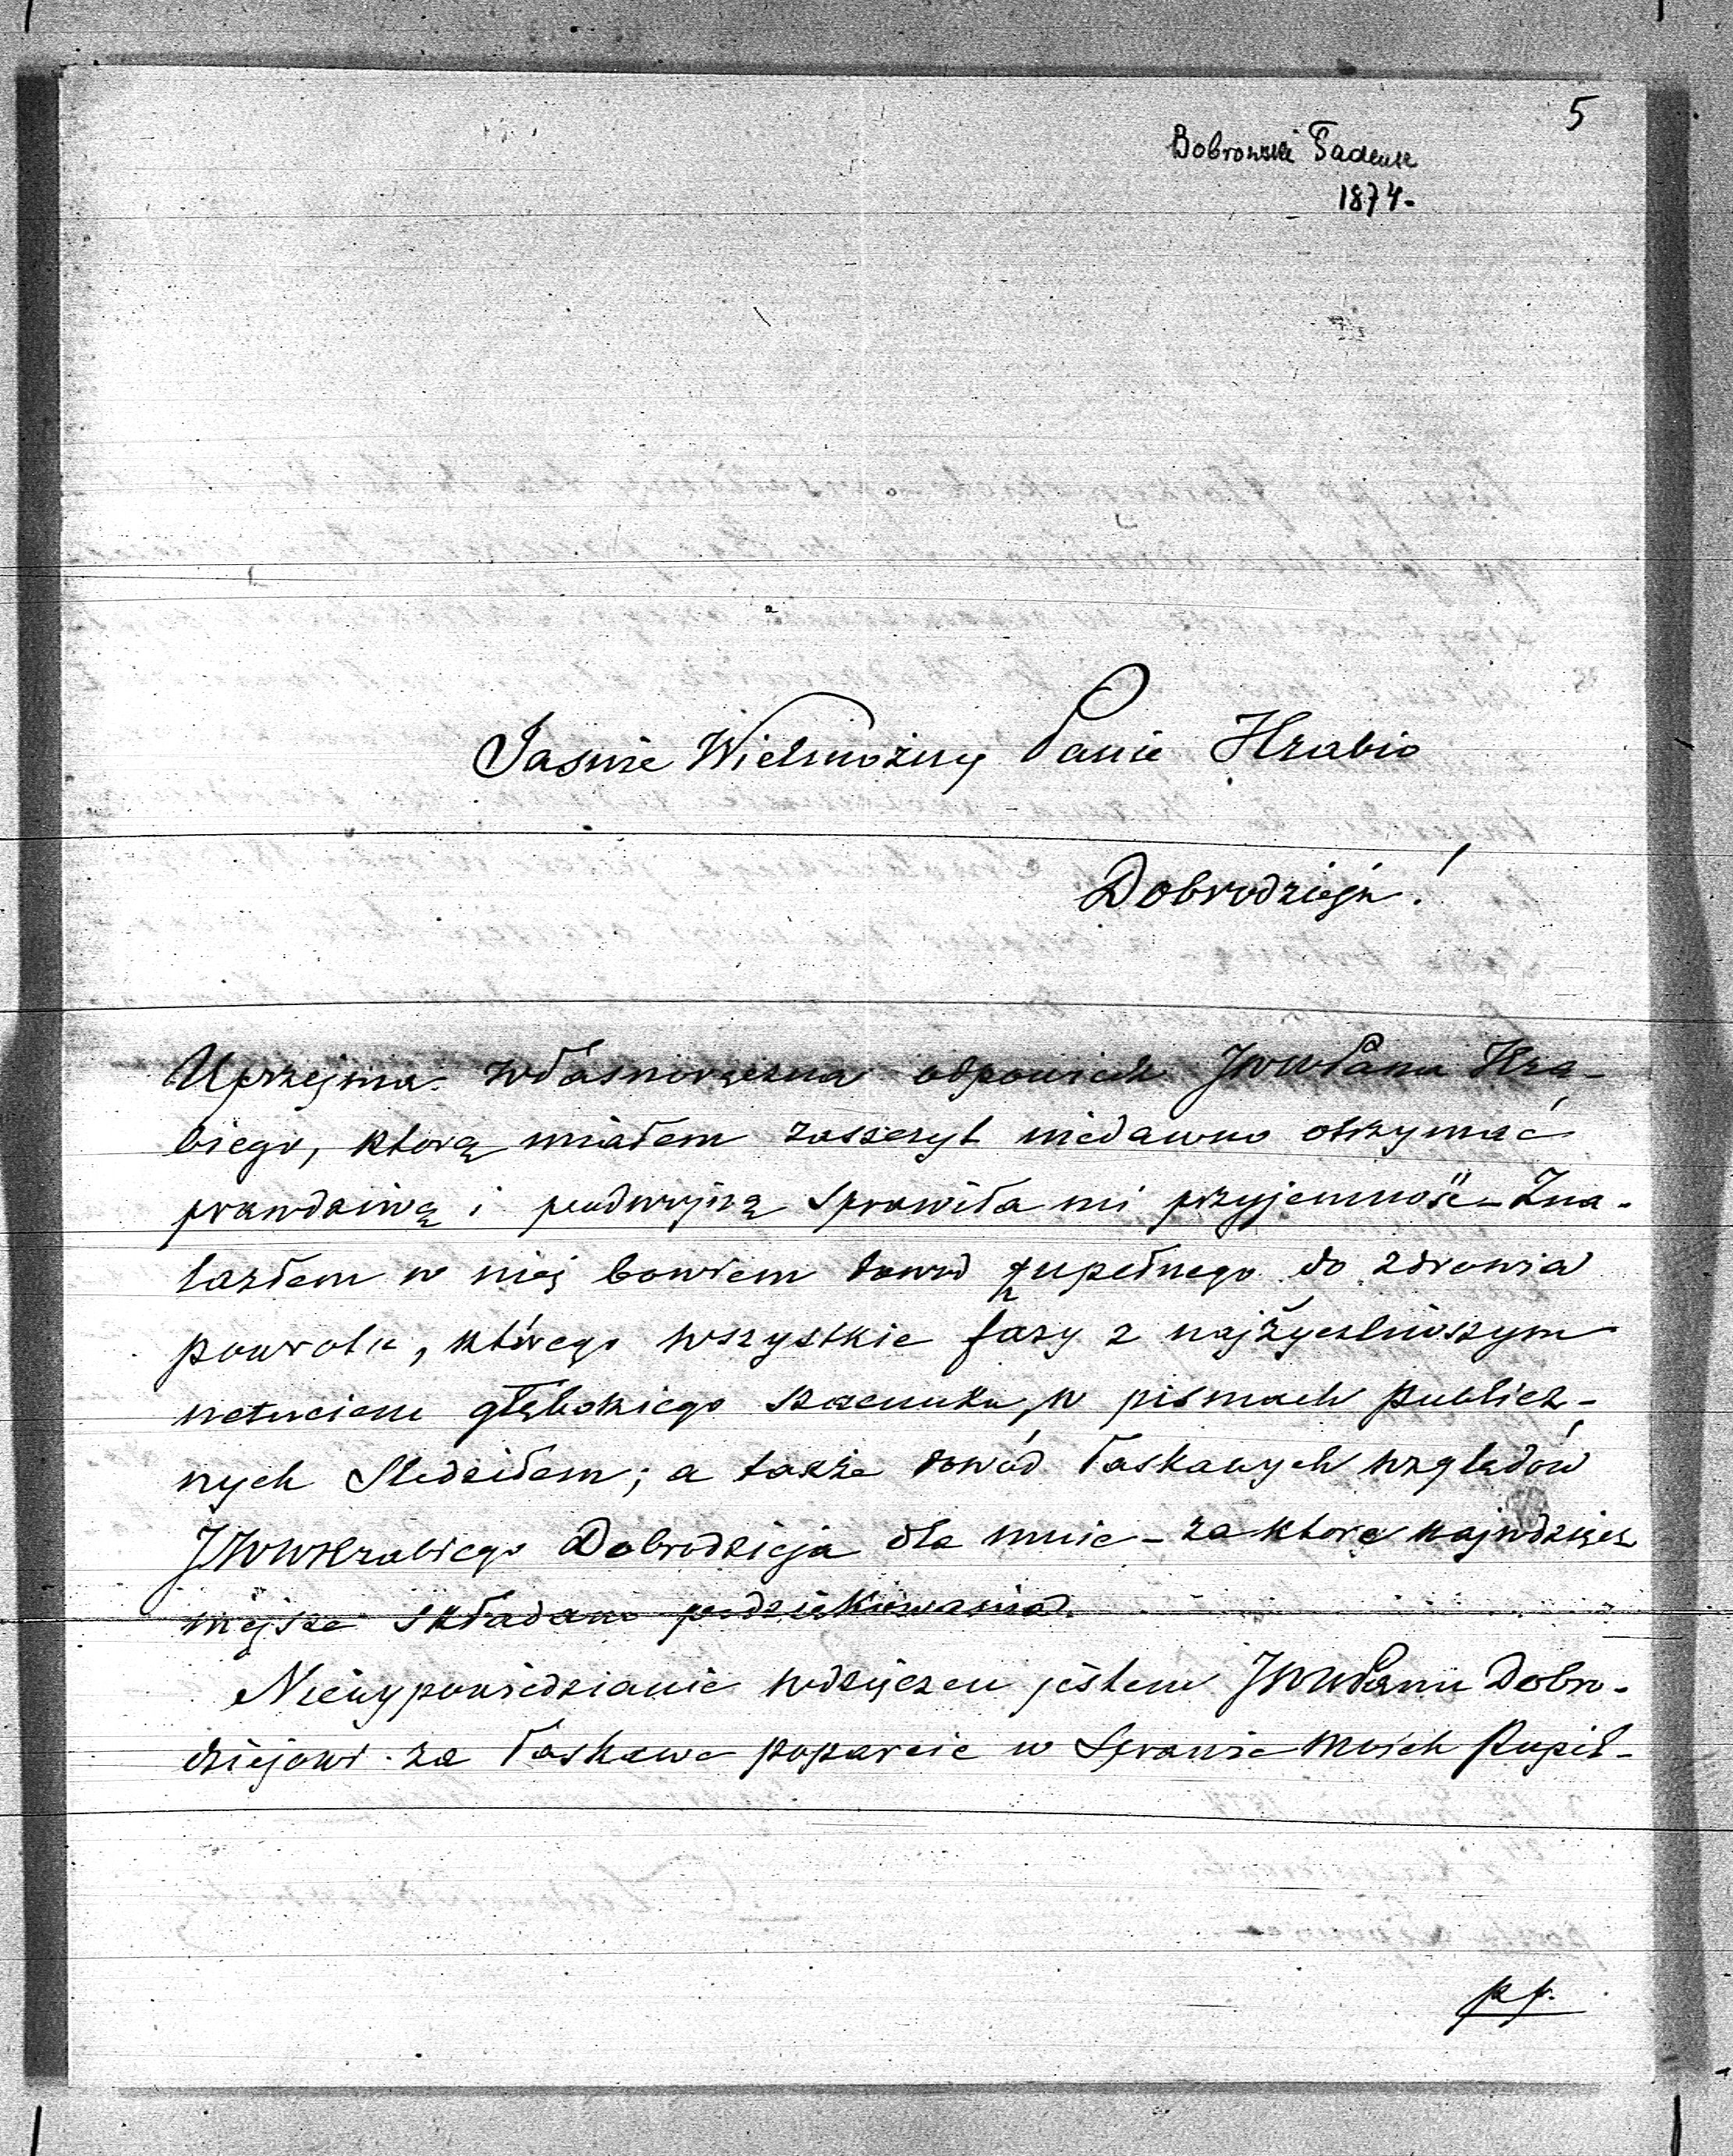 5
Bobrowski Tadeusz
1874-
Jaśnie Wielmożny Panie Hrabio
Dobrodzieju!
Uprzejma własnoręczna odpowiedź JWWPana Hra-
biego, którą miałem zaszczyt niedawno otrzymać
prawdziwą i podwójną sprawiła mi przyjemność - Zna-
lazłem w niej bowiem dowód zupełnego do zdrowia
powrotu, którego wszystkie fazy z najżyczliwszym
uczuciem głębokiego szacunku, w pismach publicz-
nych śledziłem; a także dowód łaskawych względów
JWWHrabiego Dobrodzieja dla mnie - za które najwdzięcz
niejsze składam podziękowania.
Niewypowiedzianie wdzięczen jestem JWWPanu Dobro-
dziejowi za łaskawe poparcie w sprawie moich Pupil-
pp.